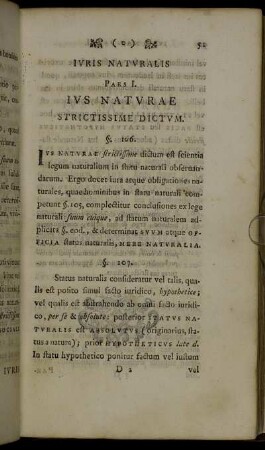 ( o )
51
IVRIS NATVRALIS
PARS I.
IVS NATVRAE
STRICTISSIME DICTVM.
§. 106.
IVS NATVRAE strictissime dictum est scientia
legum naturalium in statu naturali observan-
darum. Ergo docet iura atque obligationes na-
turales, quae hominibus in statu naturali com-
petunt §. 105, complectitur conclusiones ex lege
naturali suum cuique, ad statum naturalem ad-
plicita §. eod., & determinat SVVM atque OF-
FICIA status naturalis, MERE NATVRALIA.
§. 107.
Status naturalis consideratur vel talis, qua-
lis est posito simul facto iuridico, hypothetice;
vel qualis est abstrahendo ab omni facto iuridi-
co, per se & absolute: posterior STATVS NA-
TVRALIS est ABSOLVTVS (originarius, status
a natura); prior HYPOTHETICVS late d.
In statu hypothetico ponitur factum vel iustum
D 2
vel